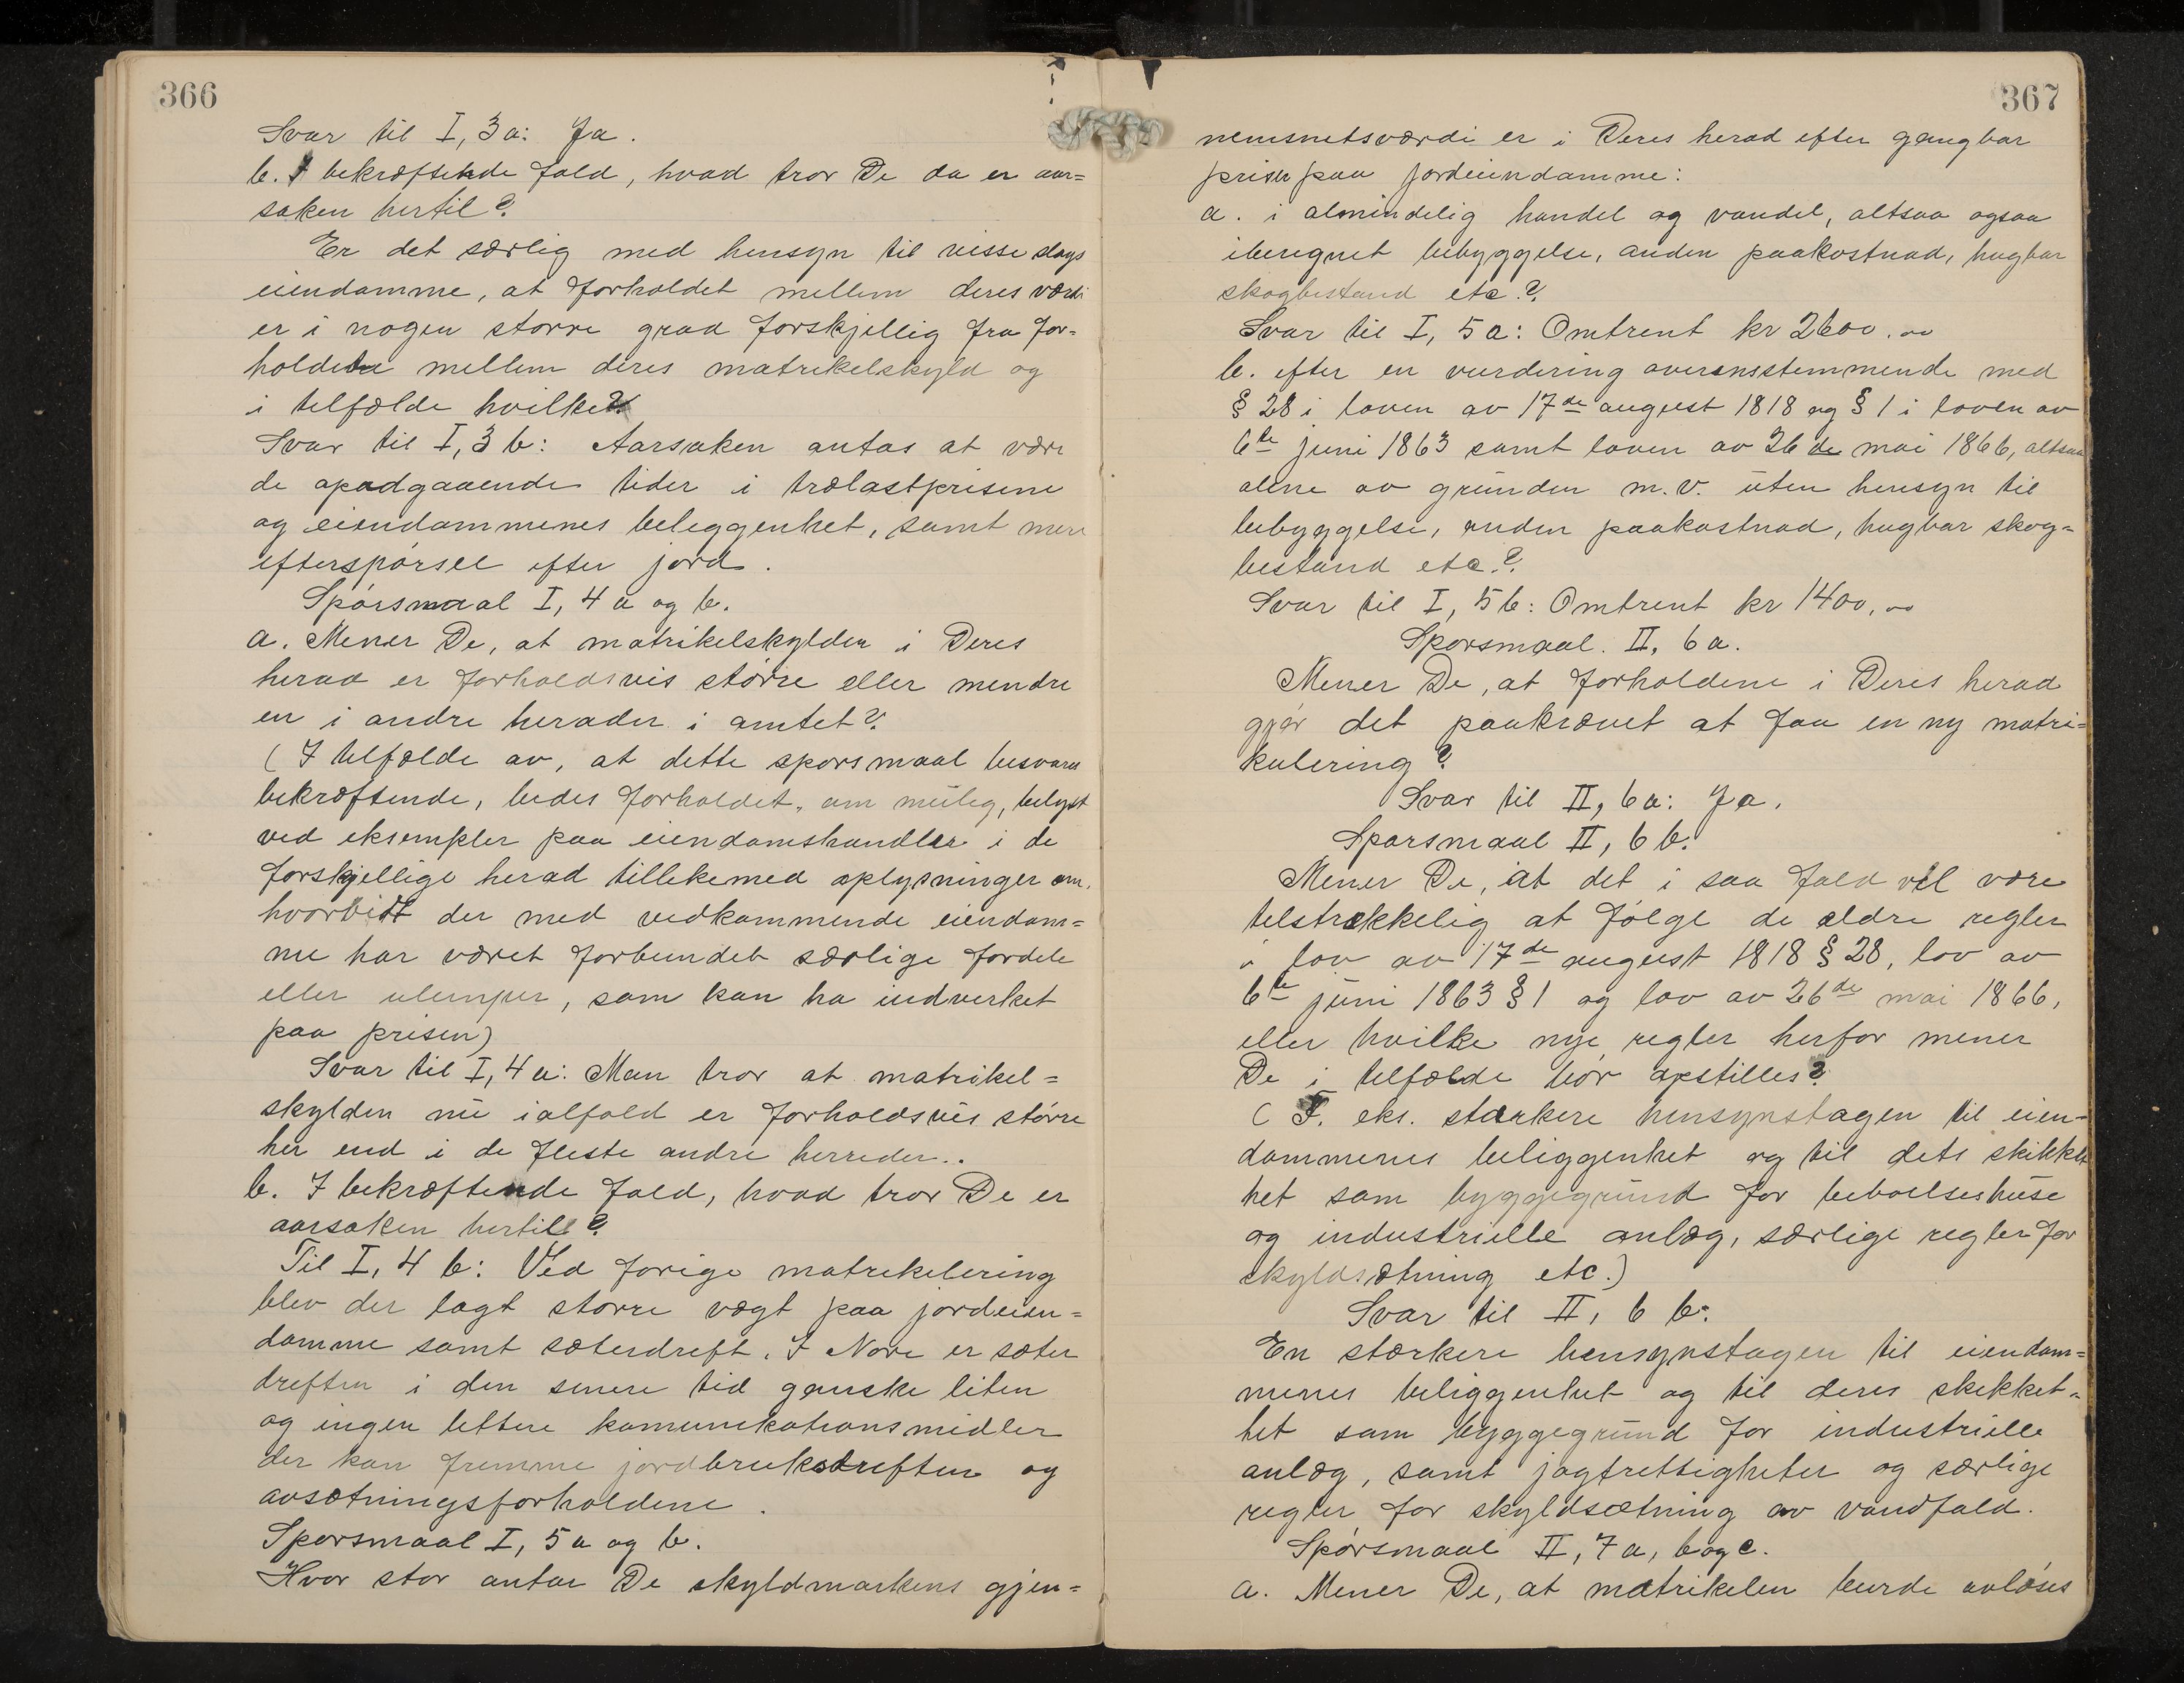 366
Svar til I, 3a: Ja.
b. I bekræftende fald, hvad tror De da er aar=
saken hertil?
Er det særlig med hensyn til visse slags
eiendomme, at forholdet mellem deres værdi
er i nogen større grad forskjellig fra for=
holdene mellem deres matrikelskyld og
i tilfælde hvilke?
Svar til I, 3 b: Aarsaken antas at være
de opadgaaende tider i trælastprisene
og eiendommenes beleggenhet, samt mere
efterspørsel efter jord.
Spørsmaal I, 4 a og b.
a. Mener De, at matrikelskylden i Deres
herad er forholdsvis større eller mendre
en i andre herader i amtet?
(I tilfælde av, at dette spørsmaal besvares
bekræftende, bedes forholdet, om mulig, belyst
ved eksempler paa eiendomshandler i de
forskjellige herad tillekemed oplysninger om,
hvorvidt der med vedkommende eiendom=
me har været forbundet særlige fordele
eller ulemper, som kan ha indverket
paa prisen)
Svar til I, 4 a: Man tror at matrikel=
skylden nu ialfald er forholdsvis større
her end i de fleste andre herreder..
b. I bekræftende fald, hvad tror De er
aarsaken hertil?
Til I, 4 b: Ved forige matrekelering
blev der lagt større vægt paa jordeien=
domme samt sæterdreft. I Nore er sæter
dreften i den senere tid ganske liten
og ingen lettere komunekationsmidler
der kan fremme jordbruksdreften og
avsætningsforholdene.
Spørsmaal I, 5 a og b.
Hvor stor antar De skyldmarkens gjen=
367
nemsnetsværdi er i Deres herad efter gangbar
priser paa jordeiendomme:
a. i almindelig handel og vandel, altsaa ogsaa
iberegnet bebyggelse, anden paakostnad, hugbar
skogbestand etc.?
Svar til I, 5 a: Omtrent kr 2600.oo
b. efter en vurdering overensstemmende med
§ 28 i loven av 17de august 1818 og § 1 i loven av
6te juni 1863 samt loven av 26 de mai 1866, altsaa
alene av grunden m.v. uten hensyn til
bebyggelse, anden paakostnad, hugbar skog=
bestand etc.?
Svar til I, 5 b: Omtrent kr 1400,oo
Spørsmaal. II, 6 a.
Mener De, at forholdene i Deres herad
gjør det paakrævet at faa en ny matri=
kulering?
Svar til II, 6 a: Ja.
Spørsmaal II, 6 b.
Mener De, at det i saa fald vil være
telstrækkelig at følge de ældre regler
i lov av 17de august 1818 § 28, lov av
6te juni 1863 § 1 og lov av 26de mai 1866,
eller hvilke nye regler herfor mener
De i telfælde bør opstilles?
( F. eks. stærkere hensynstagen til eien=
dommenes beliggenhet og til dets skikket
het som byggegrund for beboelseshuse
og industrielle anlæg, særlige regler for
skyldsætning etc.)
Svar til II, 6 b:
En stærkere hensynstagen til eiendom=
menes beliggenhet og til deres skekket=
het som byggegrund for industrielle
anlæg, samt jagtrettigheter og særlige
regler for skyldsætning av vandfald.
Spørsmaal II, 7 a, b og c.
a. Mener De, at matrikelen burde avløses